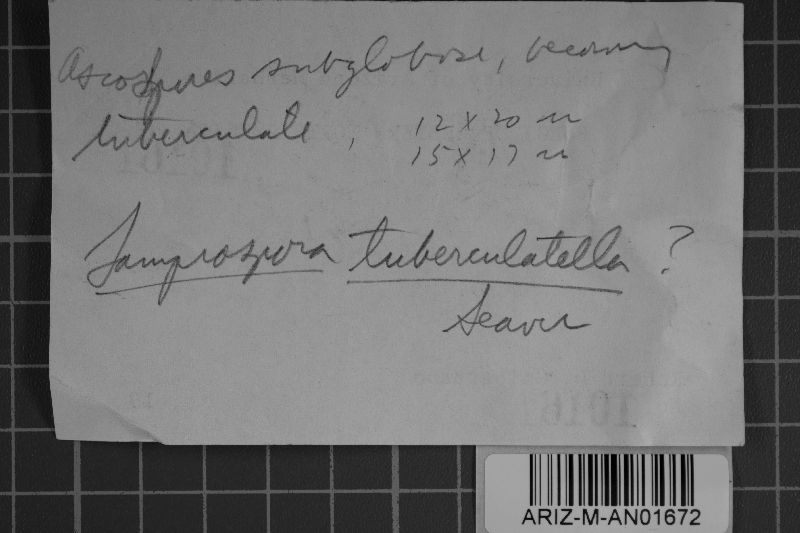 Ascospores subglobose, becoming
tuberculate, 12 x 20 u
15 x 17 u
Lamprospora tuberculatella ?
Seaver
ARIZ-M-AN01672